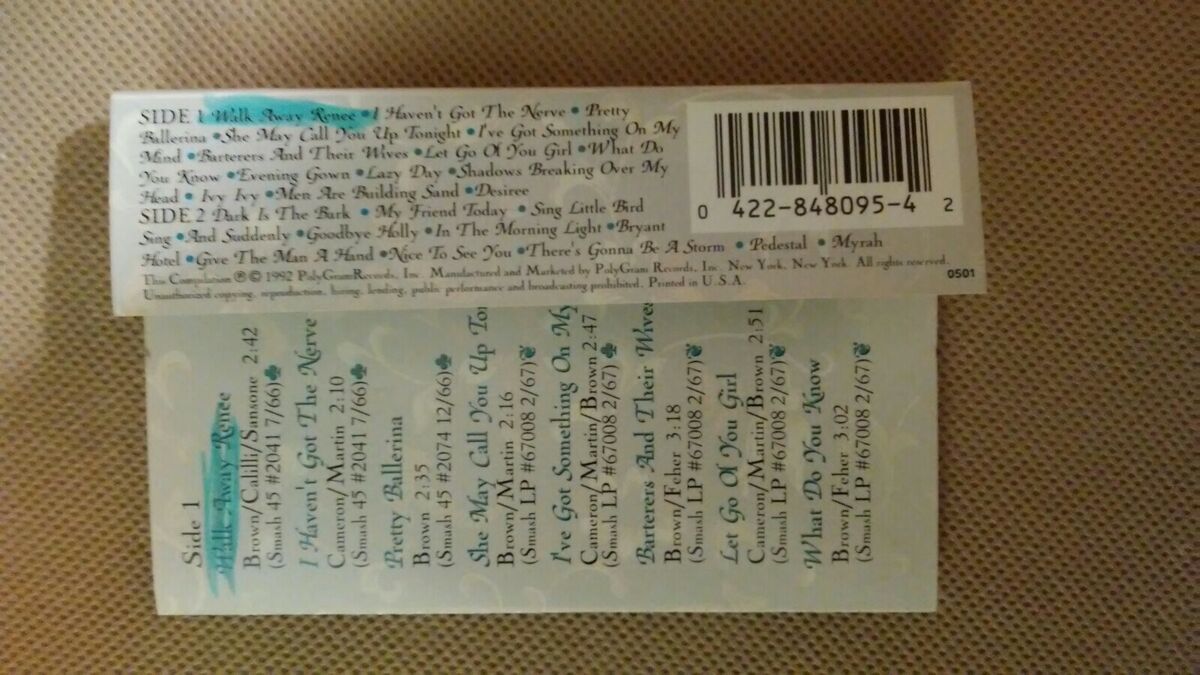 SIDE 1 Walk Away Renee • I Haven't Got The Nerve • Pretty
Ballerina • She May Call You Up Tonight • I've Got Something On My
Mind • Barterers And Their Wives • Let Go Of You Girl • What Do
You Know • Evening Gown • Lazy Day • Shadows Breaking Over My
Head • Ivy Ivy • Men Are Building Sand • Desiree
SIDE 2 Dark Is The Bark • My Friend Today • Sing Little Bird
Sing • And Suddenly • Goodbye Holly • In The Morning Light • Bryant
Hotel • Give The Man A Hand • Nice To See You • There's Gonna Be A Storm • Pedestal • Myrah
This Compilation ℗ © 1992 PolyGram Records, Inc. Manufactured and Marketed by PolyGram Records, Inc. New York, New York. All rights reserved.
Unauthorized copying, reproduction, hiring, lending, public performance and broadcasting prohibited. Printed in U.S.A.
0 422-848095-4 2
0501
Side 1
Walk Away Renee
Brown/Calilli/Sansone 2:42
(Smash 45 #2041 7/66)♣
I Haven't Got The Nerve
Cameron/Martin 2:10
(Smash 45 #2041 7/66)♣
Pretty Ballerina
Brown 2:35
(Smash 45 #2074 12/66)♣
She May Call You Up To
Brown/Martin 2:16
(Smash LP #67008 2/67)❦
I've Got Something On My
Cameron/Martin/Brown 2:47
(Smash LP #67008 2/67)♣
Barterers And Their Wives
Brown/Feher 3:18
(Smash LP #67008 2/67)❦
Let Go Of You Girl
Cameron/Martin/Brown 2:51
(Smash LP #67008 2/67)❦
What Do You Know
Brown/Feher 3:02
(Smash LP #67008 2/67)❦